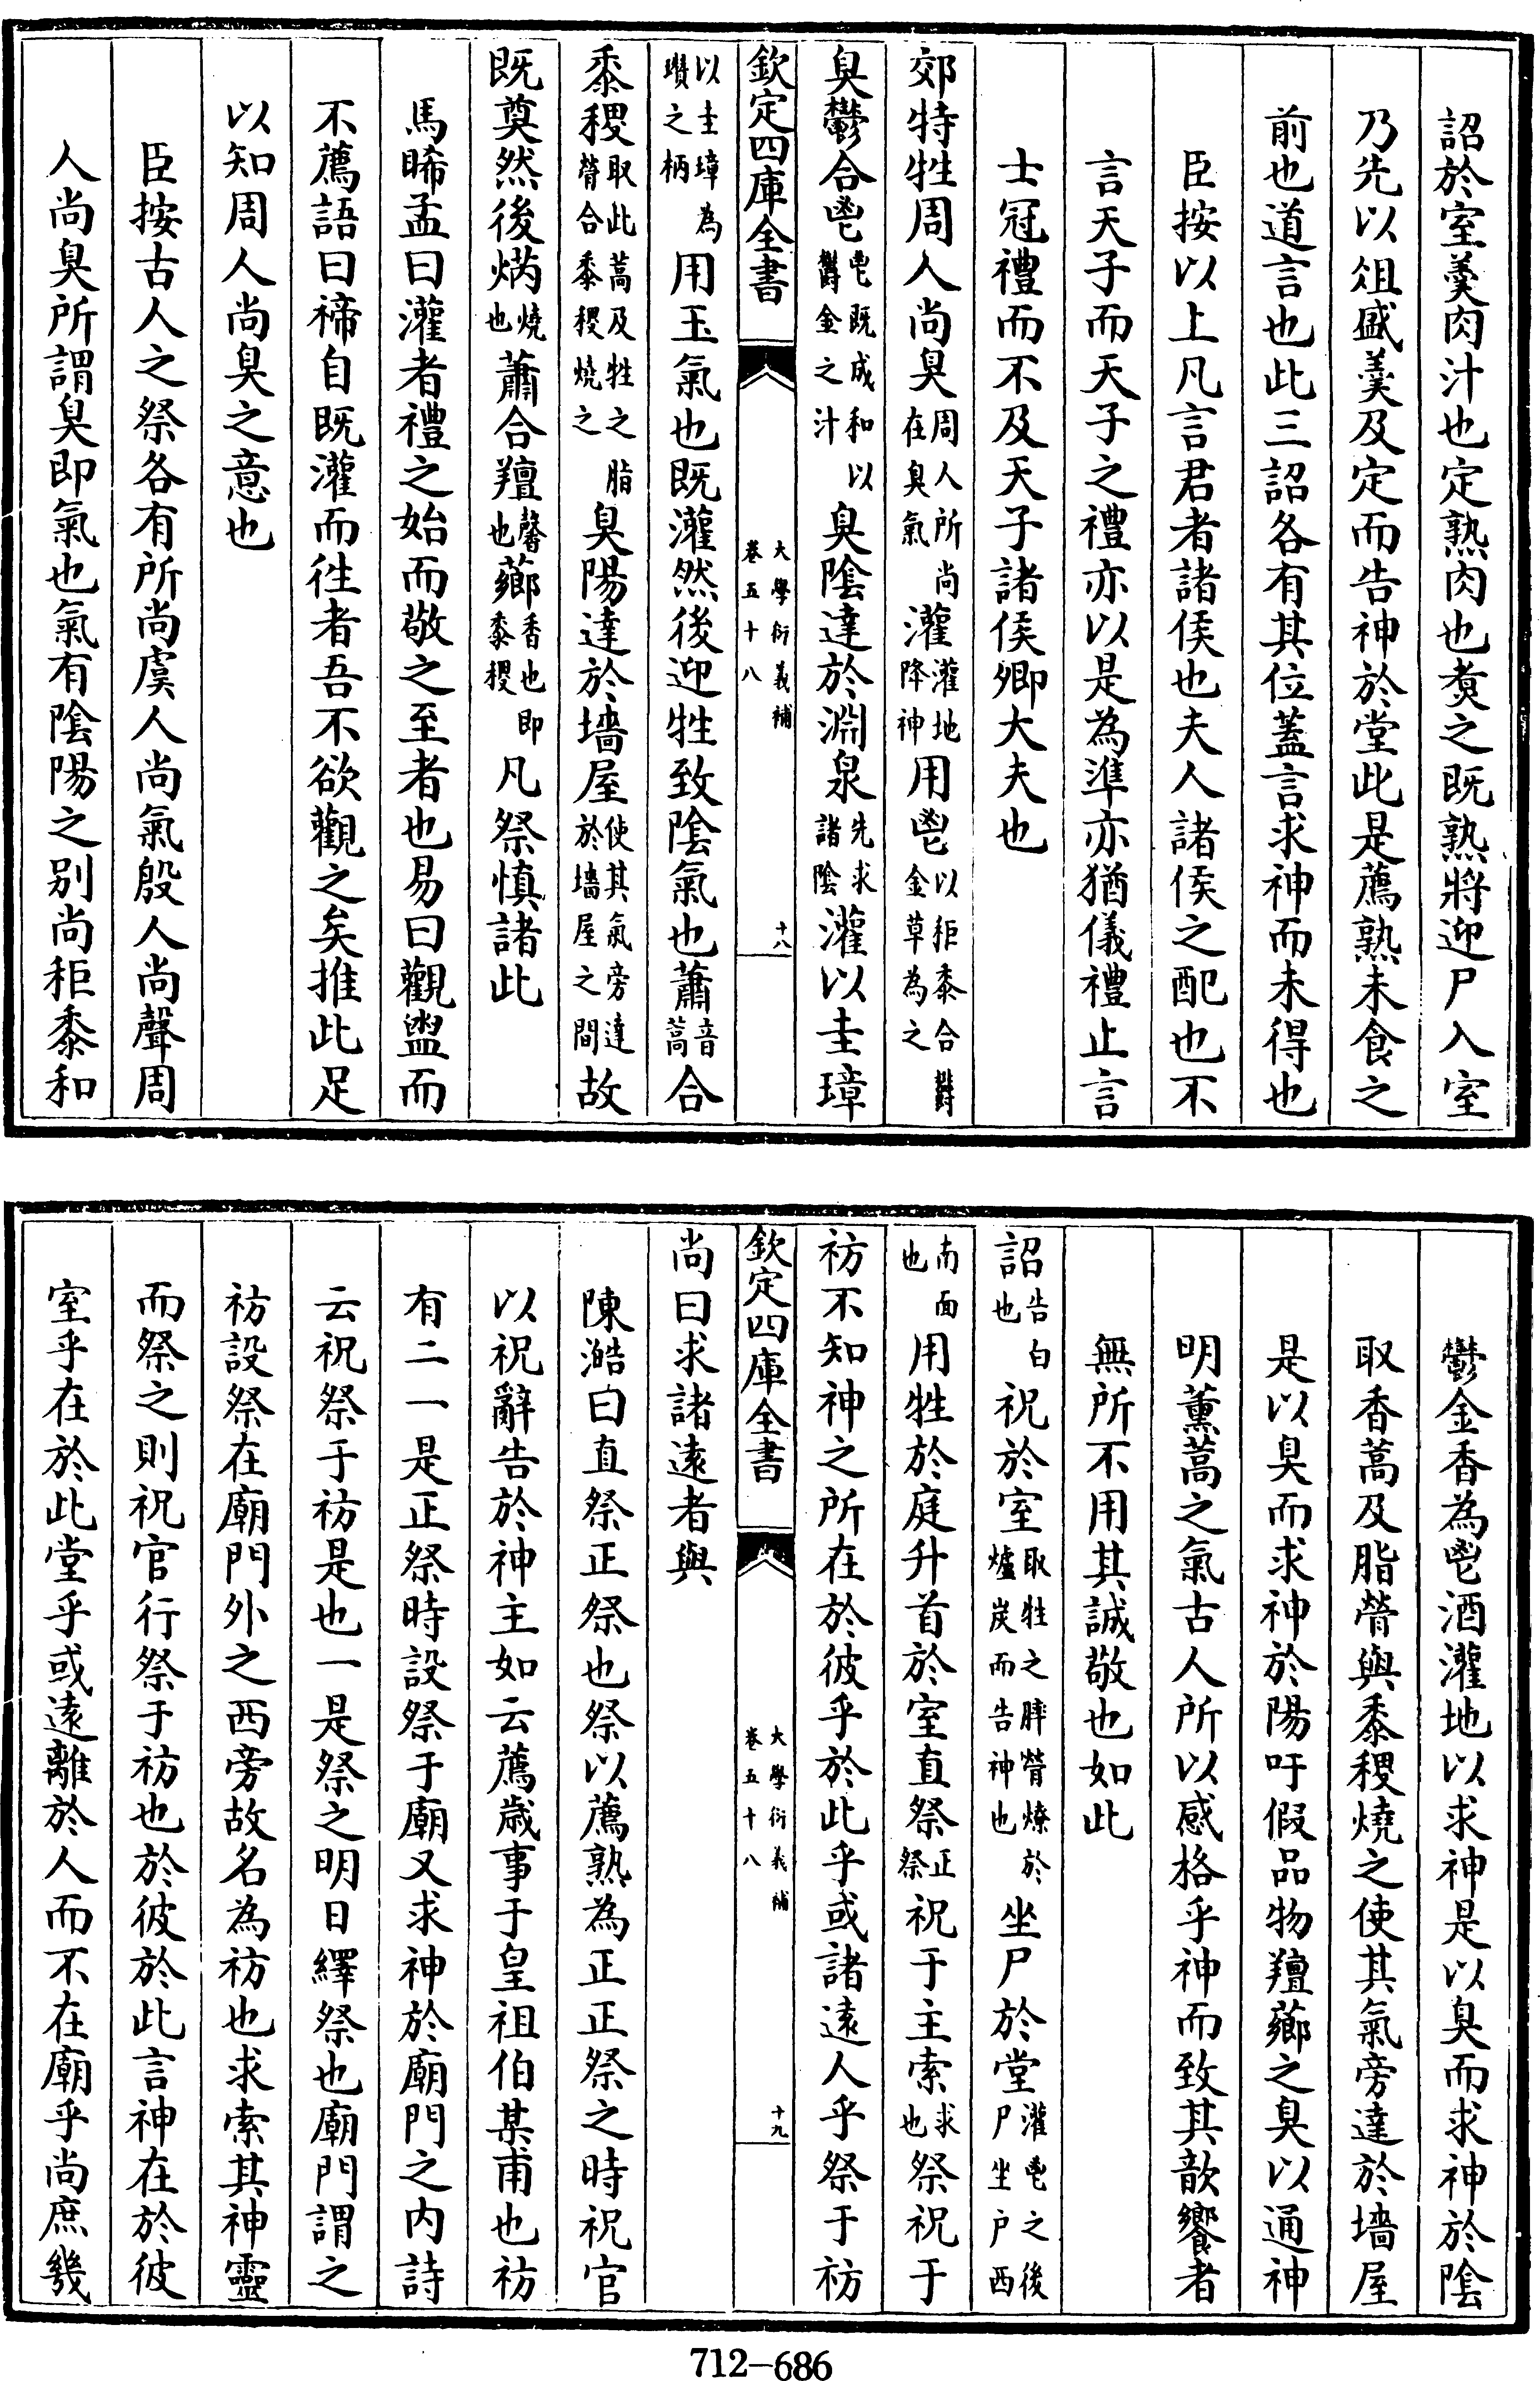 詔於室羹肉汁也定熟肉也煑之既熟將迎尸入室
乃先以俎盛羹及定而告神於堂此是薦熟未食之
前也道言也此三詔各有其位蓋言求神而未得也
臣按以上凡言君者諸侯也夫人諸侯之配也不
言天子而天子之禮亦以是為準亦猶儀禮止言
士冠禮而不及天子諸侯卿大夫也
郊特牲周人尚臭周人所尚在臭氣灌灌地降神用鬯以秬黍合鬱金草為之
臭鬱合鬯鬯既成和以鬱金之汁臭陰達於淵泉先求諸陰灌以圭璋
欽定四庫全書 大學衍義補 卷五十八 十八
以圭璋為瓚之柄用玉氣也既灌然後迎牲致陰氣也蕭音蒿合
黍稷取此蒿及牲之脂膋合黍稷燒之臭陽達於墻屋使其氣旁達於墻屋之間故
既奠然後焫燒也蕭合羶馨也薌香也即黍稷凡祭慎諸此
馬晞孟曰灌者禮之始而敬之至者也易曰觀盥而
不薦語曰禘自既灌而徃者吾不欲觀之矣推此足
以知周人尚臭之意也
臣按古人之祭各有所尚虞人尚氣殷人尚聲周
人尚臭所謂臭即氣也氣有陰陽之別尚秬黍和
鬱金香為鬯酒灌地以求神是以臭而求神於陰
取香蒿及脂膋與黍稷燒之使其氣旁達於墻屋
是以臭而求神於陽吁假品物羶薌之臭以通神
明薰蒿之氣古人所以感格乎神而致其歆饗者
無所不用其誠敬也如此
詔告白也祝於室取牲之膟膋燎於爐炭而告神也坐尸於堂灌鬯之後尸坐户西
南面也用牲於庭升首於室直祭正祭祝于主索求也祭祝于
祊不知神之所在於彼乎於此乎或諸遠人乎祭于祊
欽定四庫全書 大學衍義補 卷五十八 十九
尚曰求諸遠者與
陳澔曰直祭正祭也祭以薦熟為正正祭之時祝官
以祝辭告於神主如云薦歲事于皇祖伯某甫也祊
有二一是正祭時設祭于廟又求神於廟門之内詩
云祝祭于祊是也一是祭之明日繹祭也廟門謂之
祊設祭在廟門外之西旁故名為祊也求索其神靈
而祭之則祝官行祭于祊也於彼於此言神在於彼
室乎在於此堂乎或遠離於人而不在廟乎尚庶幾
712-686